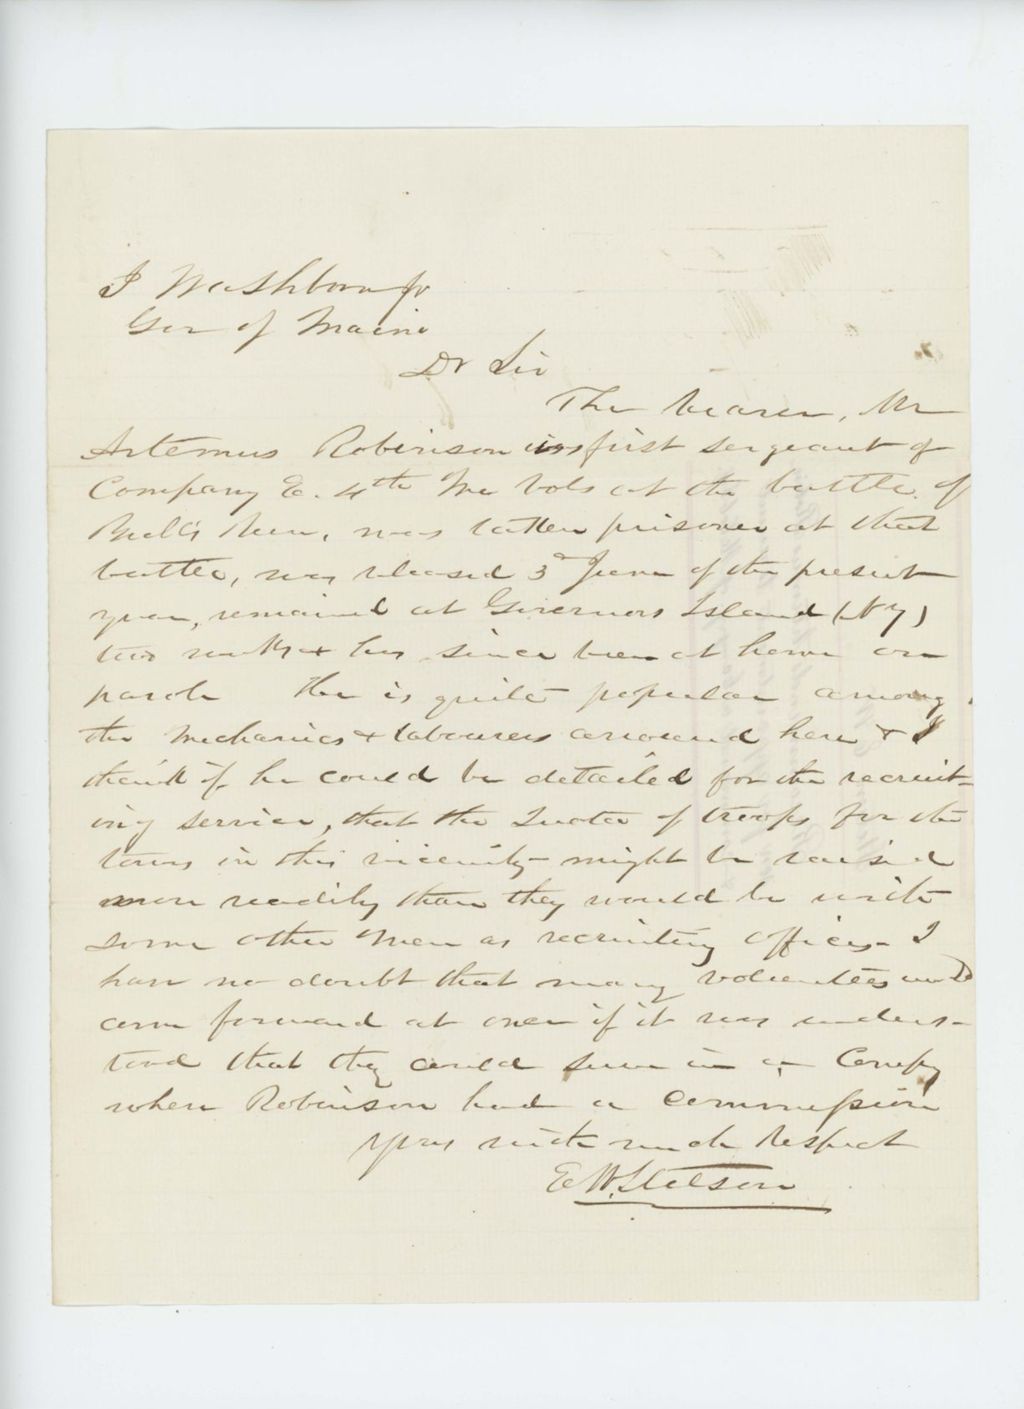 I Washborn Jr
Gov of Maine
Dr Sir
The bearer, Mr
Artemus Robinson was first sergeant of
Company E. 4th Me Vols at the battle of
Bull's Run, was taken prisoner at that
battle, was released 3d June of the present
year, remained at Governors Island (N Y)
two weeks & has since been at home on
parole He is quite popular among
the Mechanics & labourers arround here & I
think if he could be detailed for the recruit-
ing service, that the Quota of troops for the
towns in this vicinity might be raised
more readily than they would be with
some other Men as recruiting officers I
have no doubt that many volunteers would
come forward at once if it was unders-
tood that they could serve in a Compy
where Robinson had a commission
Yours with much Respect
E W. Stetson